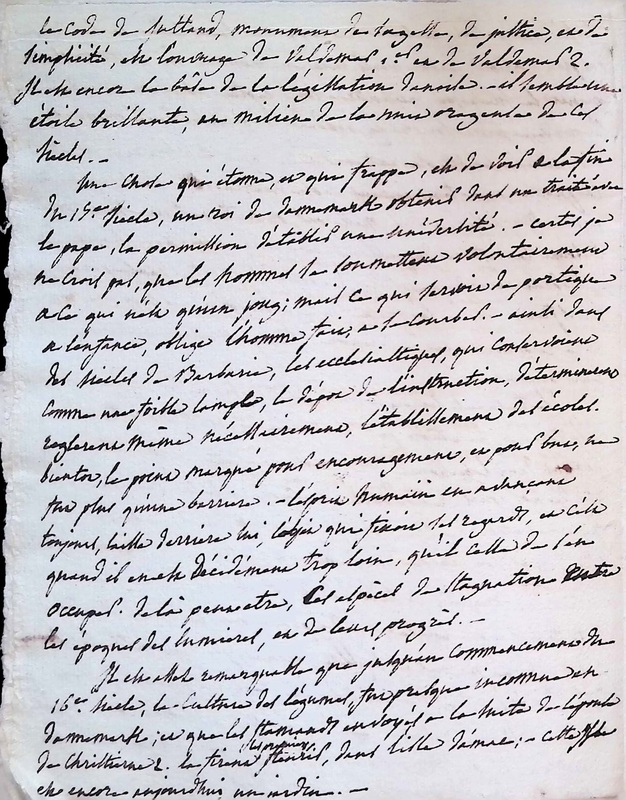 le code de Jutland, monument de sagesse, de justice, et de
simplicité, est l'ouvrage de Valdemar 1er et de Valdemar 2.
Il est encor la base de la législation danoise. - il semble une
étoile brillante, au milieu de la nuit orageuse de ces
siècles. -
une chose qui étonne, et qui frappe, est de voir à la fin
du 15me siècle, un roi de dannemark obtenir dans un traité avec
le pape, la permission d'établir une université. - certes je
ne crois pas, que les hommes se soumettent volontairement
a ce qui n'est qu'un joug; mais ce qui servoit de portique
a l'enfance, oblige l'homme fait, a se courber. - ainsi dans
des siècles de Barbarie, les ecclésiastiques, qui conservoient
comme une foible lampe, le dépot de l'instruction, déterminerent
reglerent même nécessairement, l'établissement des écoles.
bientot, le point marqué pour encouragement, et pour but, ne
fut plus qu'une barriere. - l'esprit humain en avançant
toujours, laisse derriere lui, l'objet qui fixoit ses regards, et c'est
quand il en est décidément trop loin, qu'il cesse de s'en
occuper. de là peut etre, les espèces de stagnation entre
les époques des lumieres, et de leurs progrès. -
Il est assez remarquable que jusqu'au commencement du
16me siècle, la culture des légumes, fut presque inconnue en
dannemark; et que les flamands envoyés a la suite de l'épouse
de Christierne 2. la firent fleurir, dans l'isle d'amac; - cette isle
est encore aujourdhui un jardin. -